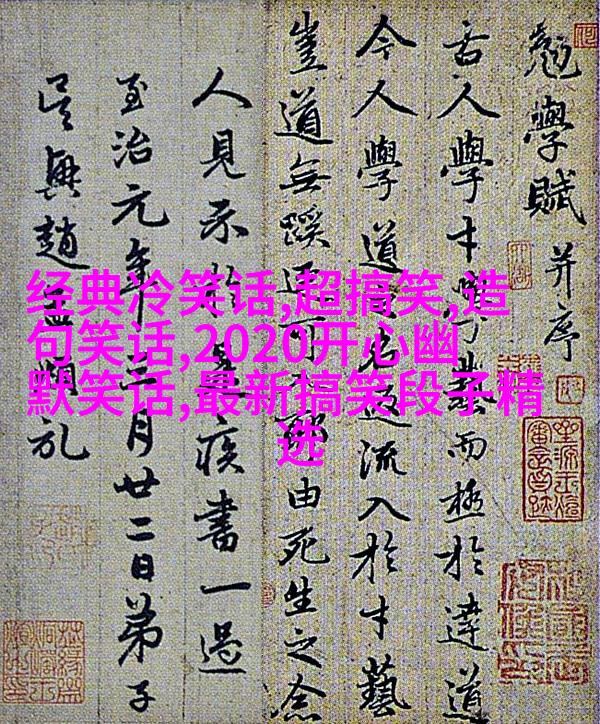 经典冷笑话,超搞笑,造
句笑话,2020开心幽
默笑话,最新搞笑段子精
选
勉學賦 并序
古人學 藝而極於達道
今人學道 名 流入於才藝
豈道無蹊 可 由死生之念
人見示於 疾書一過
至治元年三月廿二日弟子
吳興趙孟頫